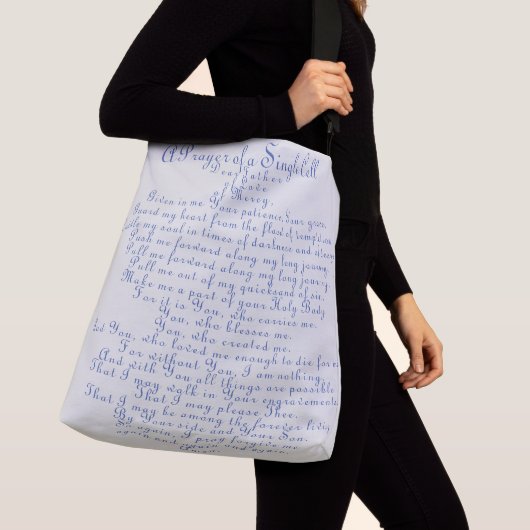 A Prayer of a Single Cell
Dear Father
of Love,
of Mercy,
Given in me Your patience, Your grace,
Guard my heart from the flood of temptation
my soul in times of darkness and
Push me forward along my long journey
Pull me forward along my long journey
Pull me out of my quicksand of sin,
Make me a part of your Holy Body
For it is You, who carries me.
You, who blesses me.
You, who created me.
You, who loved me enough to die for
For without You, I am nothing,
And with You all things are possible
That I may walk in Your engravements
That I may please Thee.
That I may be among the forever living
By Your side and Your Son.
So again, I pray forgive me
again and again and again.